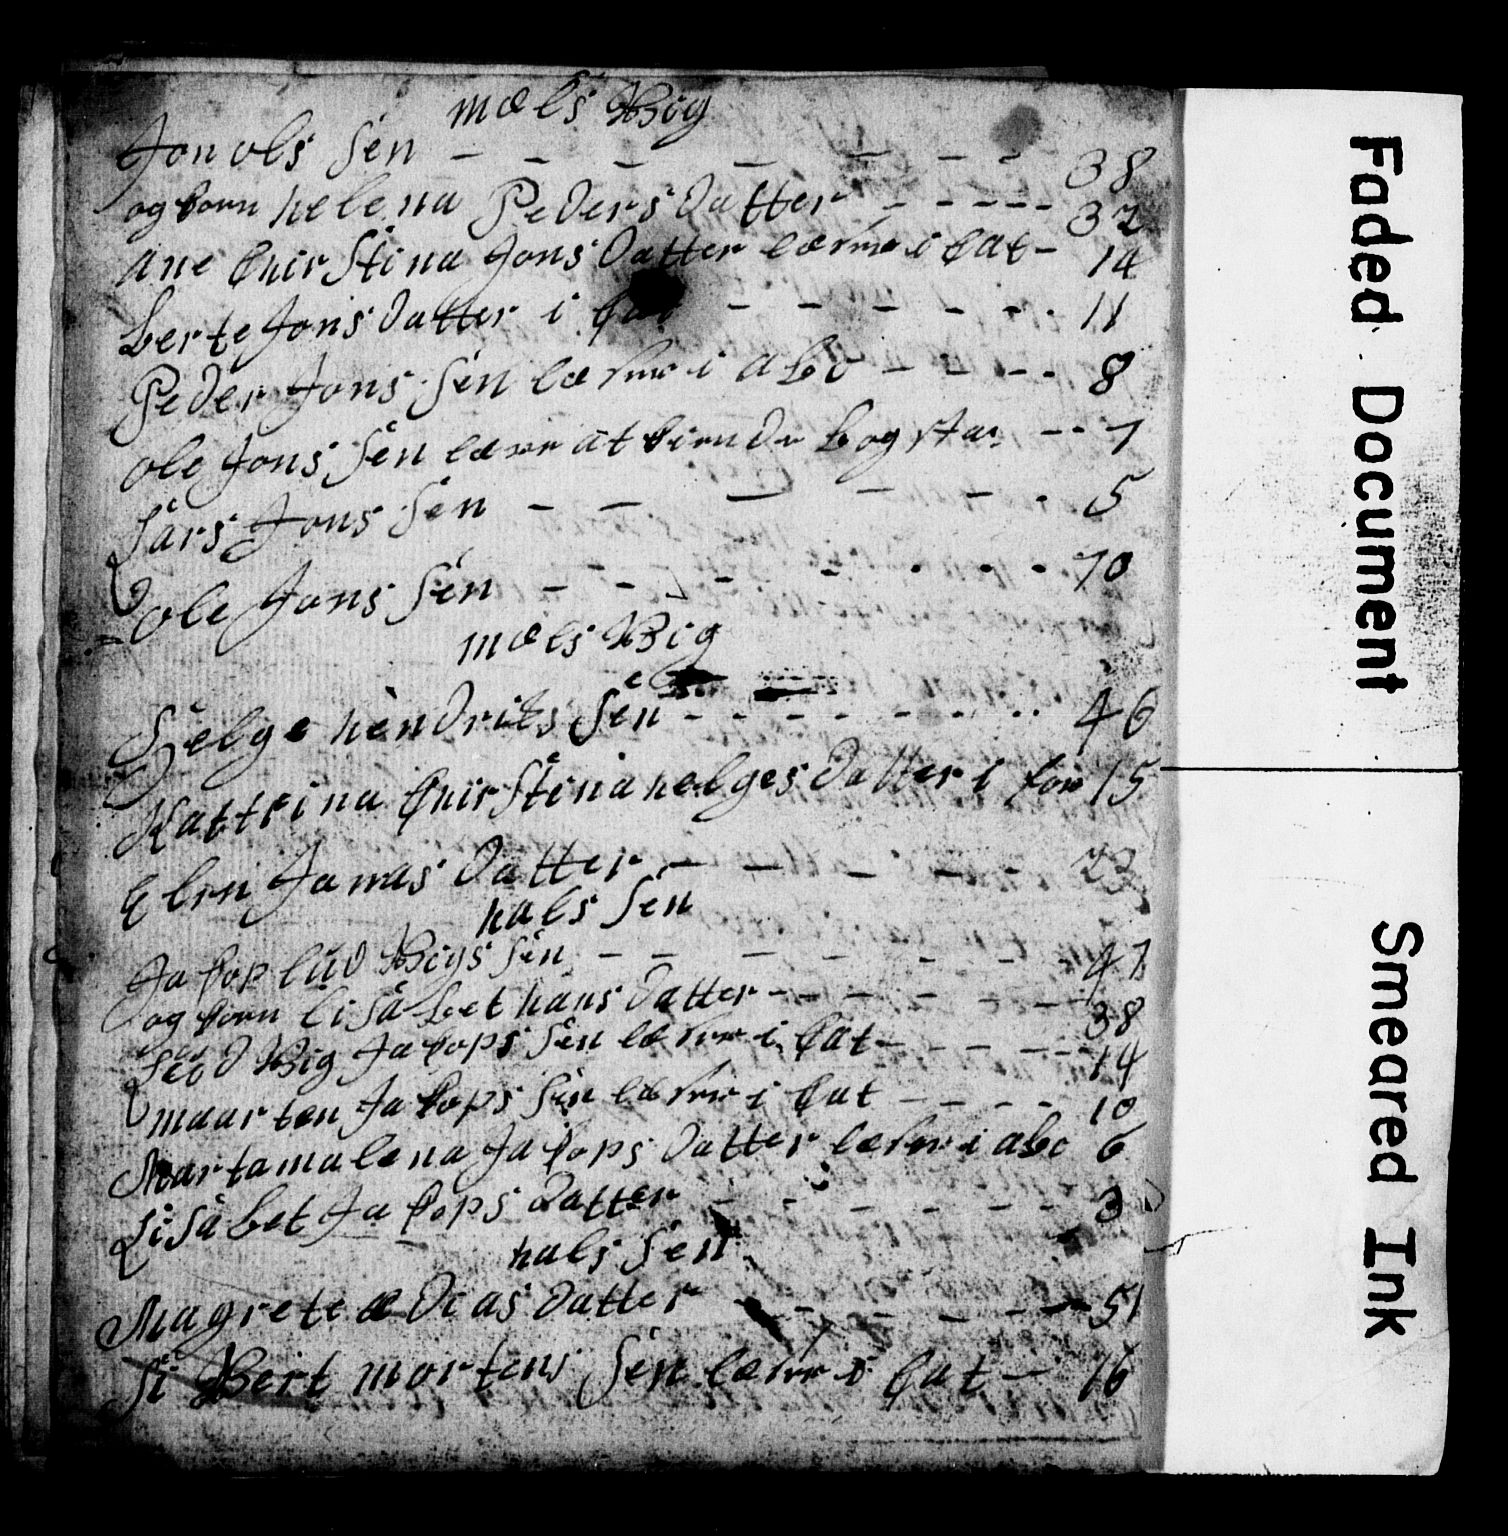 mæls Wig
Jon ols Sen - - - - - - - 38
og konn helena Peders datter - - - - - 32
Ane Chirstina Jons datter læser i Cat - 14
berte Jons datter i Cat - - - - - - 11
Peder Jons Sen læser i abc - - - - 8
ole Jons Sen lærer at kiende bogstav - - 7
Lars Jons Sen - - - - - - 5
ole Jons Sen - - - - - - - - 70
mæls Wig
Helge hendriks Sen - - - - - - - - - 46
Kattrina Chirstina helges datter i for 15
Elen Jonas datter - - - - - 23
hals Sen
Jakop lud Wigs Sen - - - - - - - 47
og konn lisabet hans datter - - - - - - - 38
Lud Wig Jakops Sen læser i Cat - - - - - 14
maarten Jakops Sen læser i Cat - - - - 10
Marta malena Jakops datter læser i abc 6
Lisabet Jakops datter - - - - - - 3
hals Sen
Magrete ædias datter - - - - - 51
Si Wert mortens Sen læser i Cat - 16
Faded Document
Smeared Ink